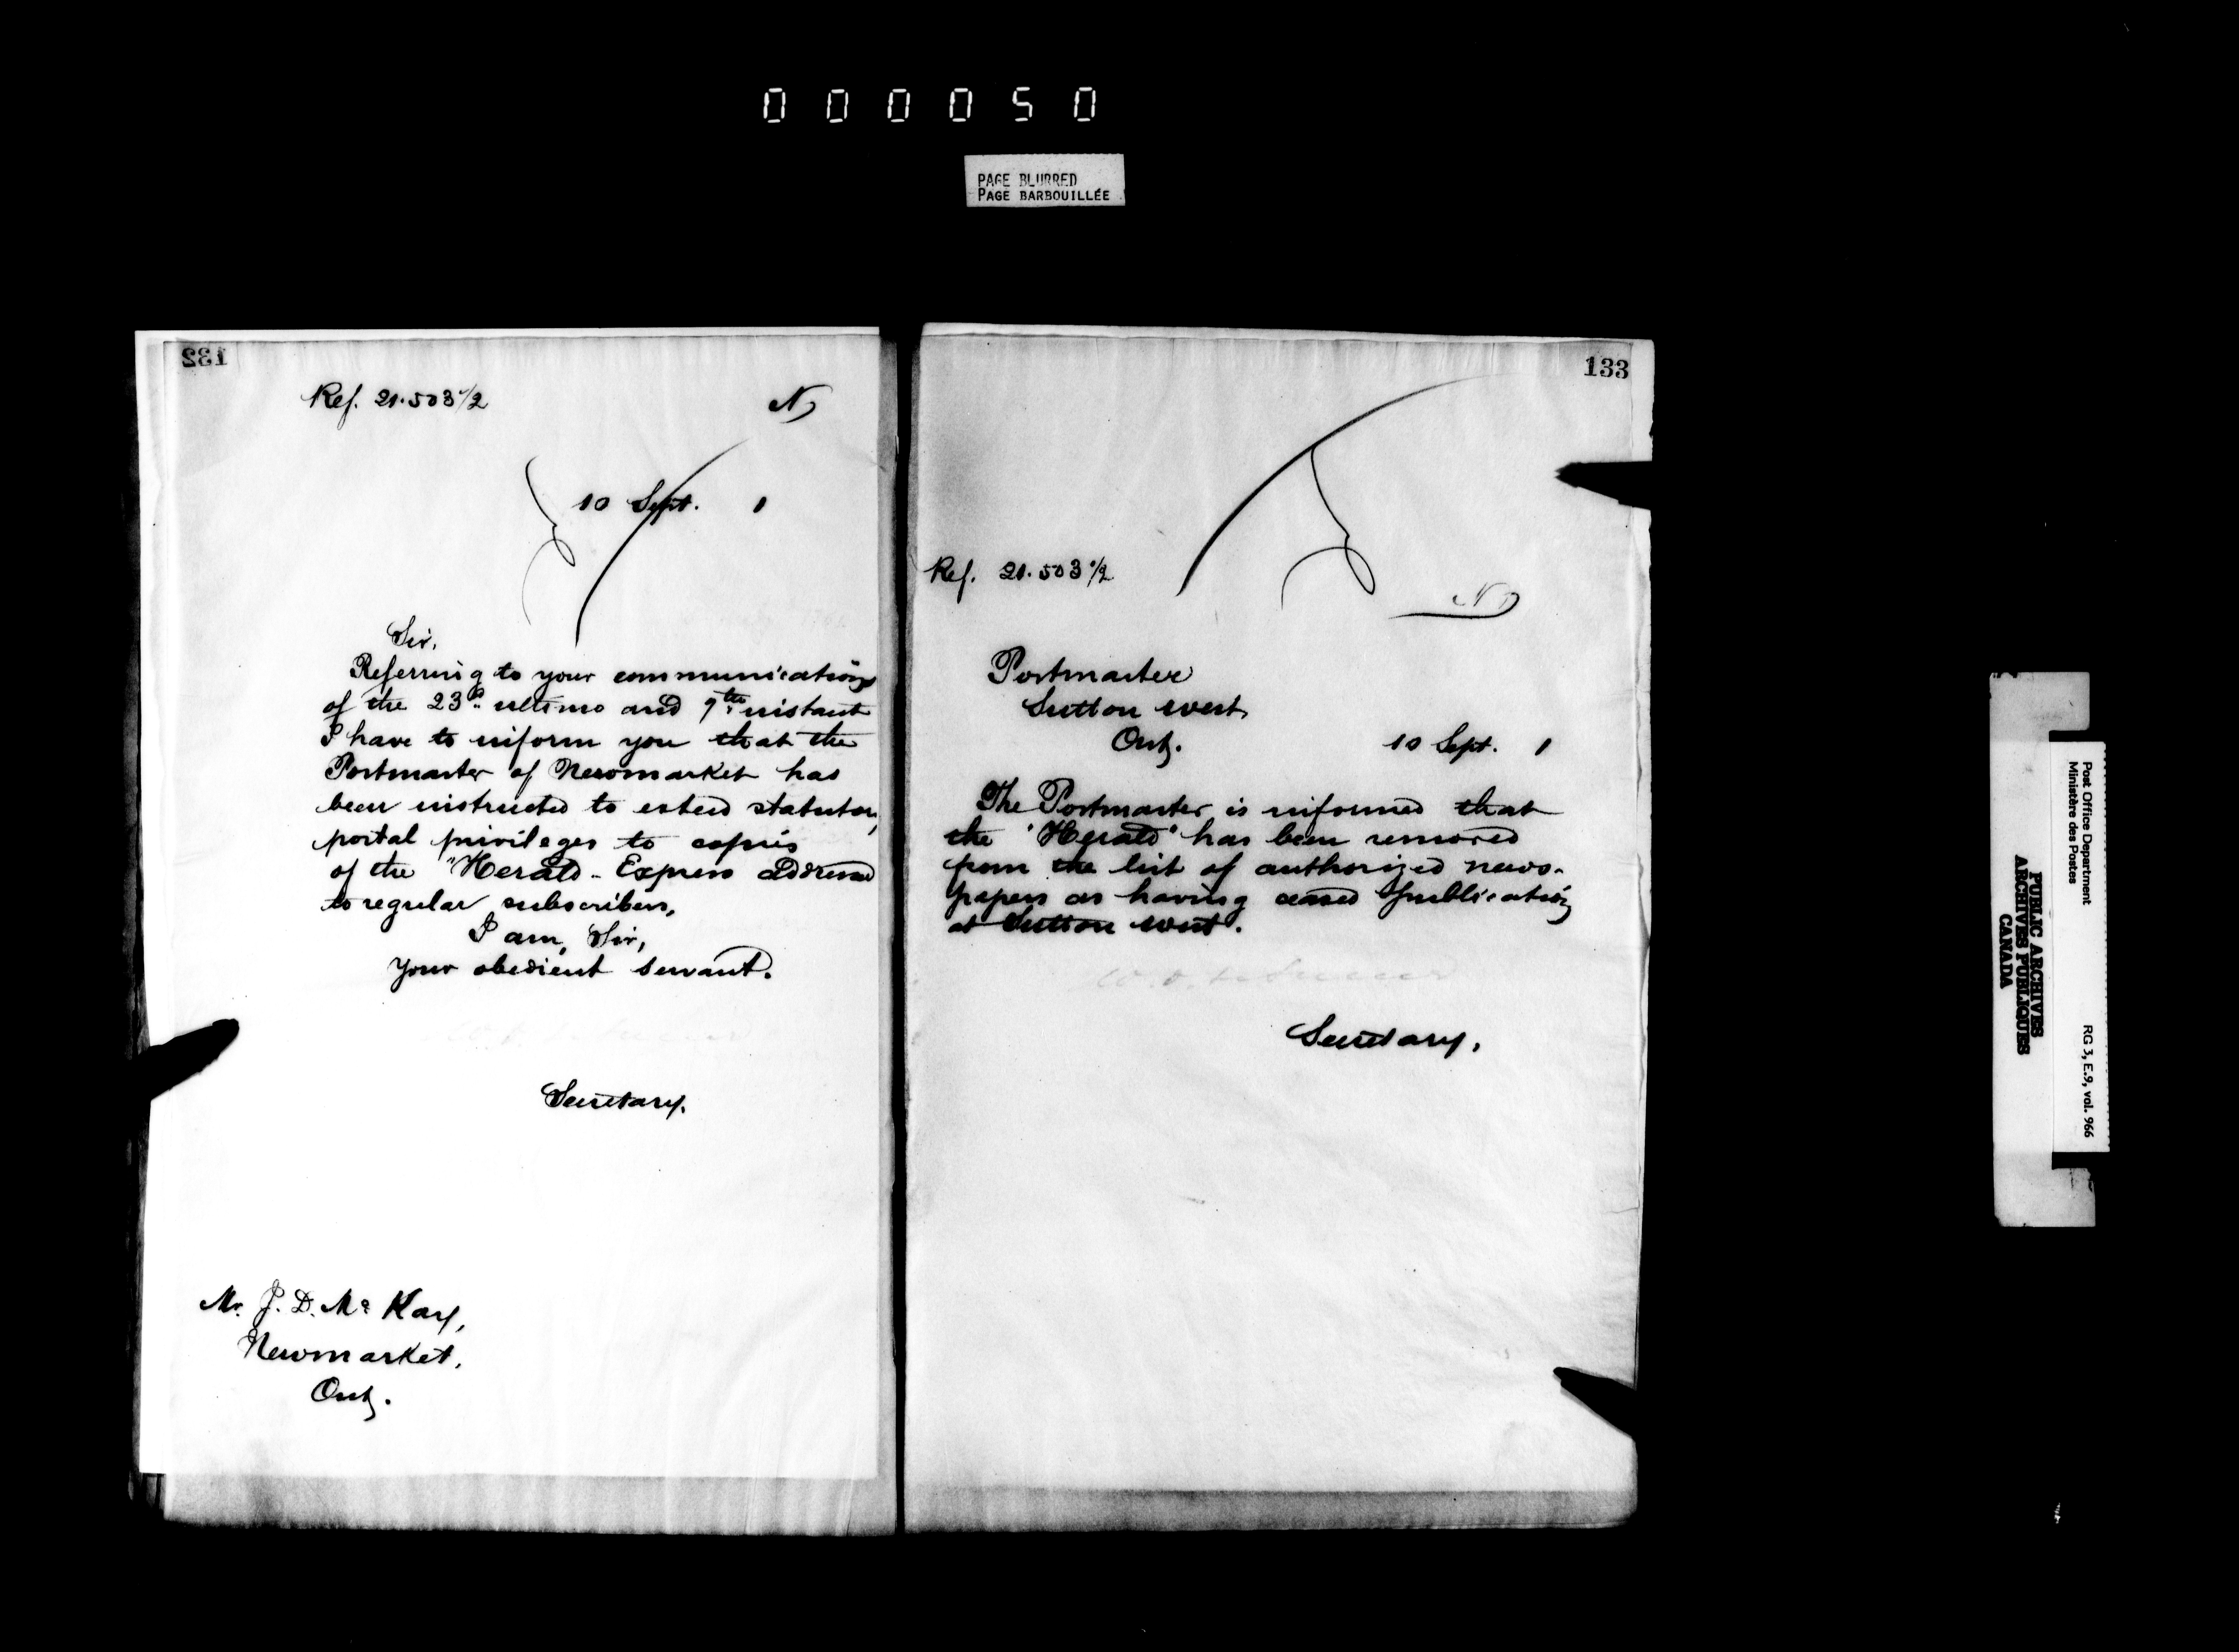 000050
PAGE BLURRED
PAGE BARBOUILLÉE
132
Ref. 21.503½
N
10 Sept. 1
Sir,
Referring to your communications
of the 23d ultimo and 9th instant
I have to inform you that the
Postmaster of Newmarket has
been instructed to extend statutory
postal privileges to copies
of the "Herald-Express addressed
to regular subscribers,
I am, Sir,
Your obedient servant.
Secretary.
Mr. J. D. Mc Kay,
Newmarket,
Ont.
133
Ref. 21.503½
N
Postmaster
Sutton West
Ont.
10 Sept. 1
The Postmaster is informed that
the "Herald" has been removed
from the list of authorized news-
papers as having ceased publication
at Sutton West.
Secretary.
Post Office Department
Ministère des Postes
RG 3, E.9, vol. 966
PUBLIC ARCHIVES
ARCHIVES PUBLIQUES
CANADA